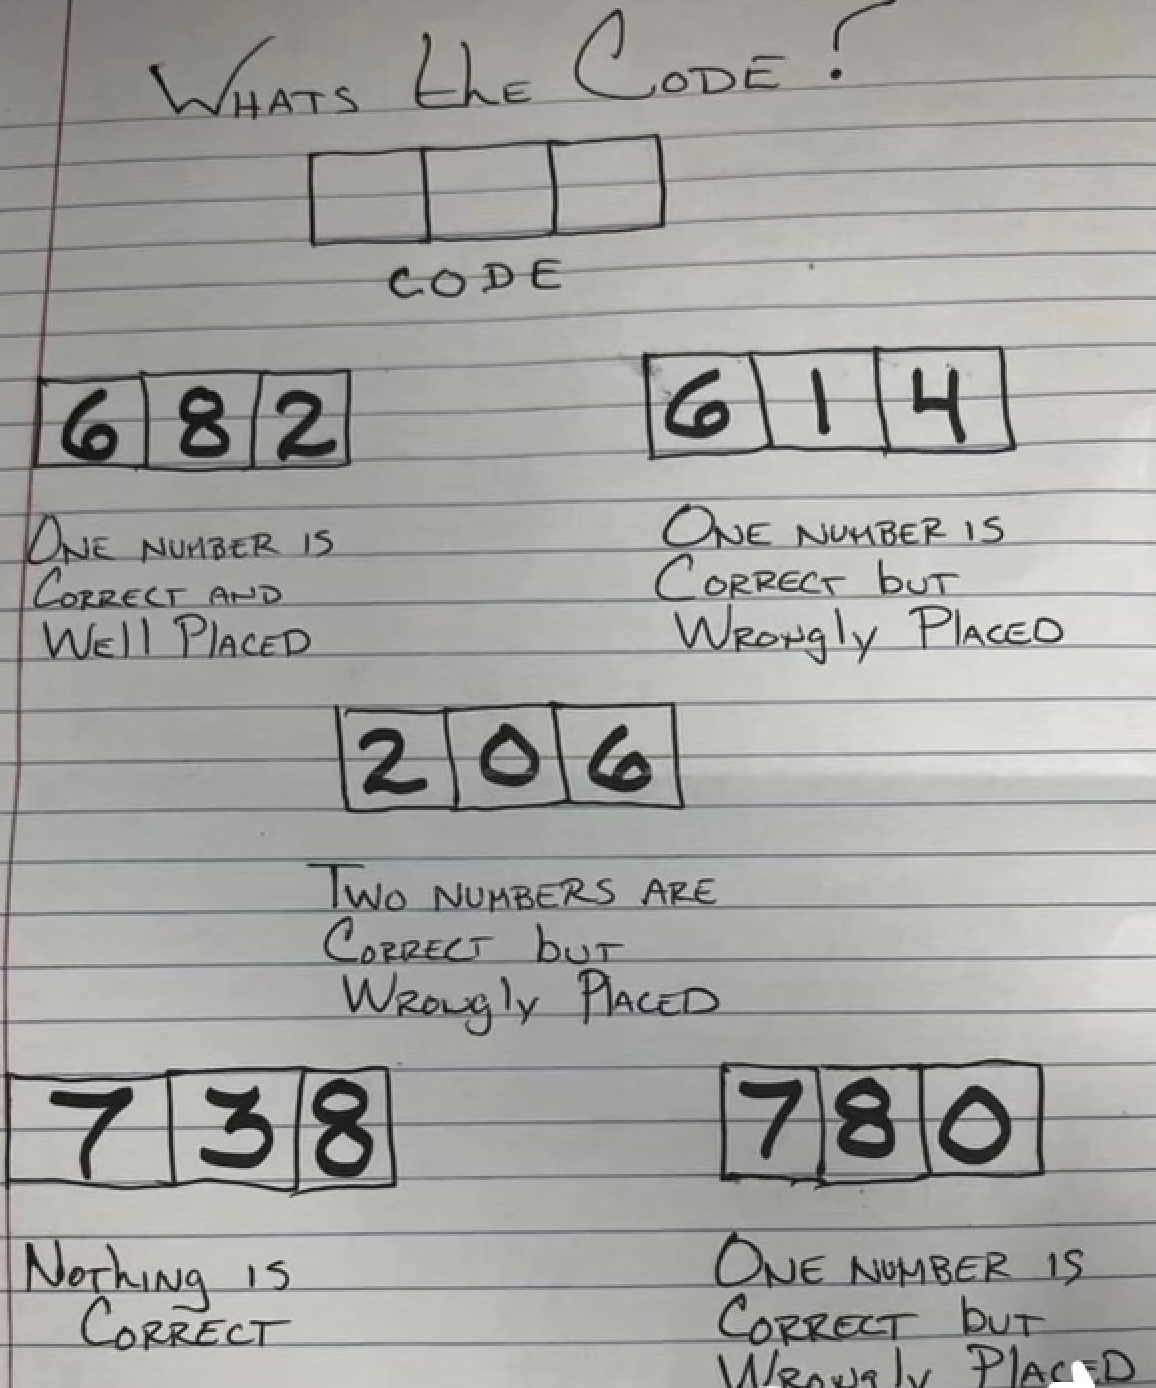 WHATS the CODE?
CODE
6 8 2
6 1 4
ONE NUMBER IS
CORRECT AND
WEll PLACED
ONE NUMBER IS
CORRECT buT
WRONGly PLACED
2 0 6
TWO NUMBERS ARE
CORRECT buT
WRONGly PLACED
7 3 8
7 8 0
NOThING IS
CORRECT
ONE NUMBER IS
CORRECT buT
WRONGly PLACED